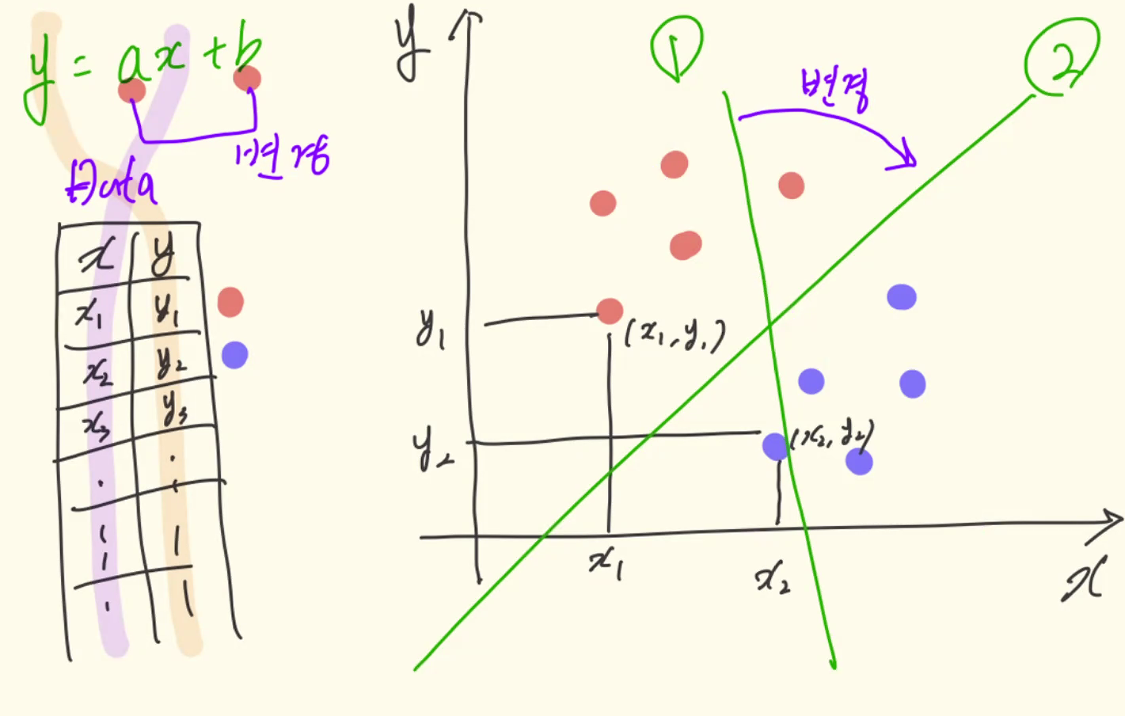 y = ax + b
변경
Data
x y
x₁ y₁
x₂ y₂
x₃ y₃
y
①
②
변경
y₁
(x₁, y₁)
y₂
(x₂, y₂)
x₁
x₂
x